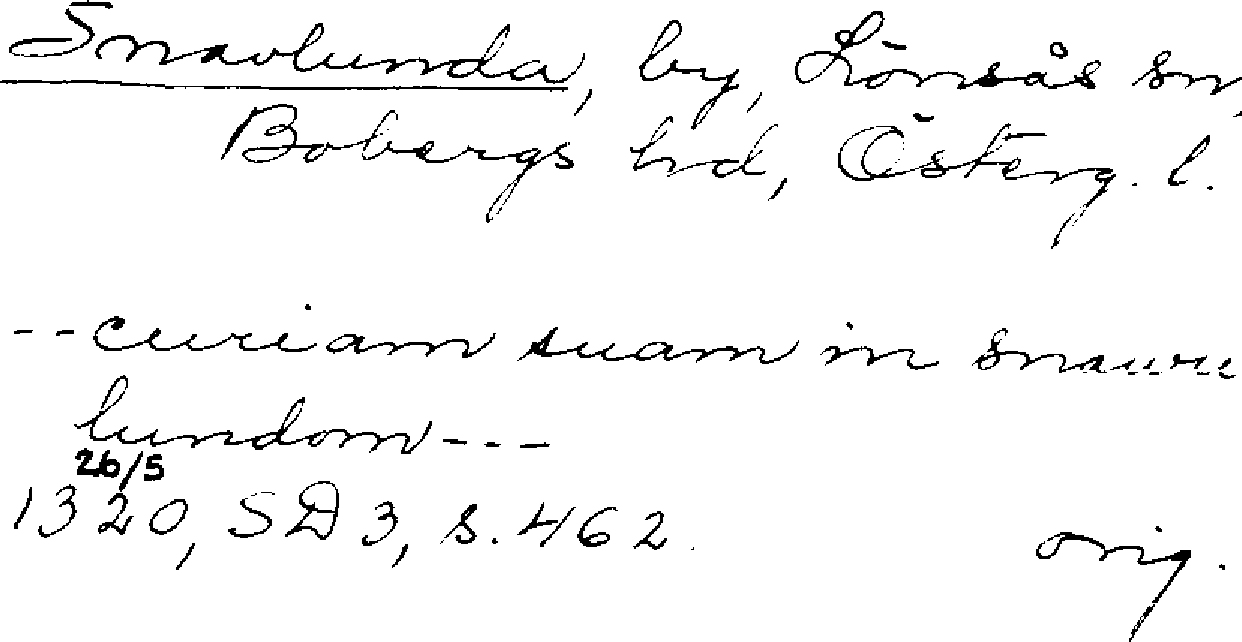 Snavlunda, by, Lönsås sn,
Bobergs hd, Österg. l.
--curiam suam in snauu
lundom---
26/5
1320, SD 3, s. 462.
orig.